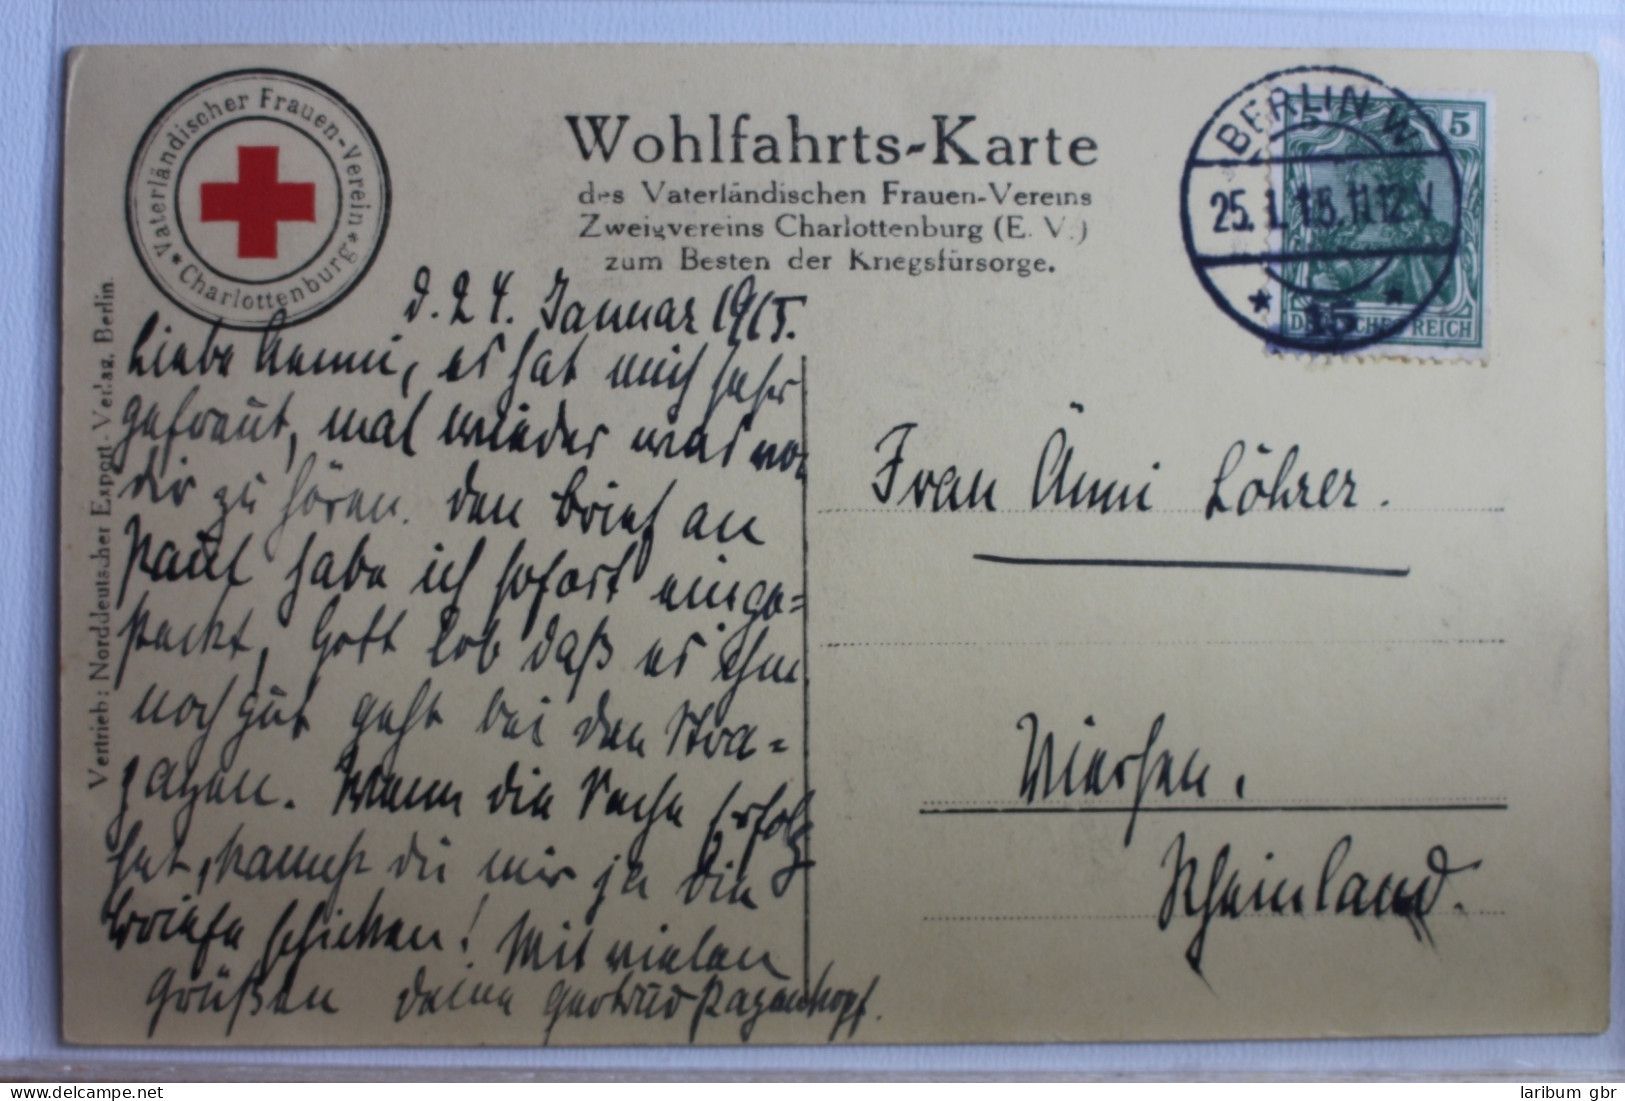 Vaterländischer Frauen-Verein * Charlottenburg *
Wohlfahrts-Karte
des Vaterländischen Frauen-Vereins
Zweigvereins Charlottenburg (E. V.)
zum Besten der Kriegsfürsorge.
BERLIN W
25. 1. 15. 11-12 V
* 15 *
5 5
DEUTSCHES REICH
Vertrieb: Norddeutscher Export-Verlag, Berlin.
d. 24. Januar 1915.
Liebe Aenni, es hat mich sehr
gefreut, mal wieder was von
dir zu hören. Den Brief an
Paul habe ich sofort einge=
steckt, Gott Lob daß es ihm
noch gut geht bei den Stra=
pazen. Wenn die Sache Erfolg
hat, kannst du mir ja die
Briefe schicken! Mit vielen
Grüßen deine Gertrud
Frau Änni Löhrer.
Viersen.
Rheinland.
laribum gbr